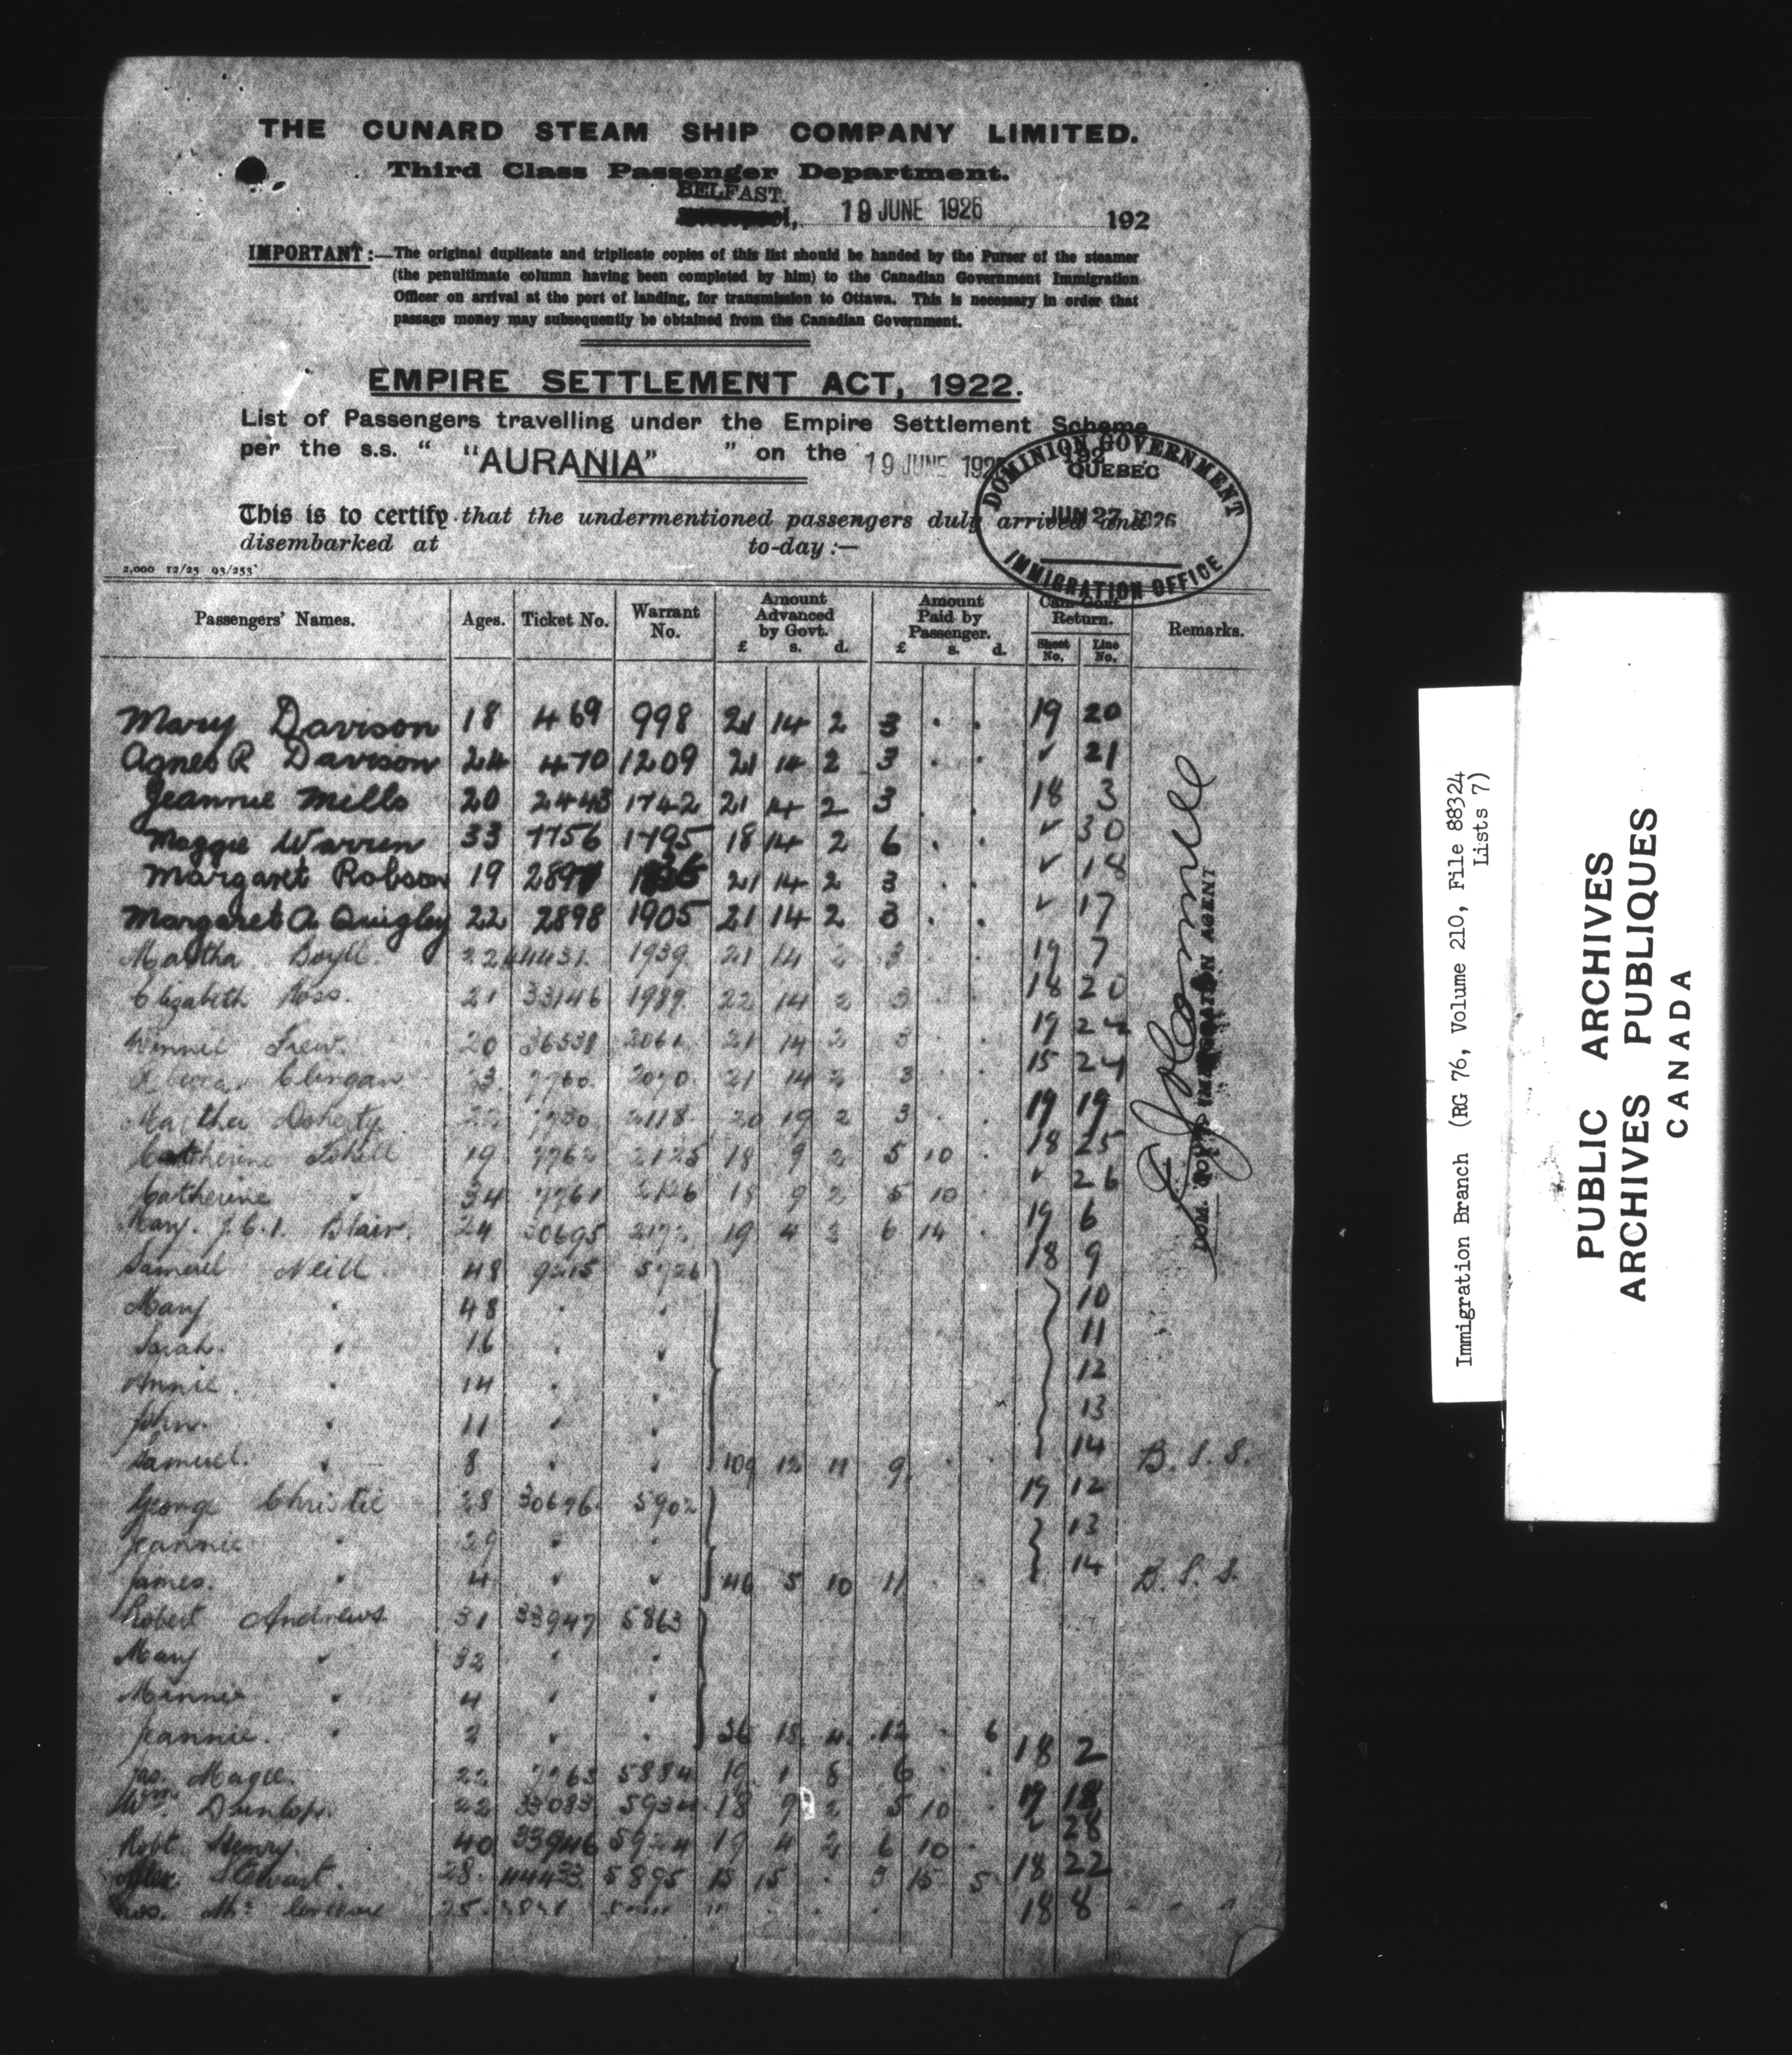 THE CUNARD STEAM SHIP COMPANY LIMITED.
Third Class Passenger Department.
BELFAST.
19 JUNE 1926 192
IMPORTANT:—The original duplicate and triplicate copies of this list should be handed by the Purser of the steamer
(the penultimate column having been completed by him) to the Canadian Government Immigration
Officer on arrival at the port of landing, for transmission to Ottawa. This is necessary in order that
passage money may subsequently be obtained from the Canadian Government.
EMPIRE SETTLEMENT ACT, 1922.
List of Passengers travelling under the Empire Settlement Scheme
per the s.s. " "AURANIA" " on the 19 JUNE 192
This is to certify that the undermentioned passengers duly arrived and
disembarked at to-day:—
DOMINION GOVERNMENT
QUEBEC
JUN 27 1926
IMMIGRATION OFFICE
2,000 12/25 93/253
Passengers' Names. Ages. Ticket No. Warrant No. Amount Advanced by Govt. £ s. d. Amount Paid by Passenger. £ s. d. Can. Govt. Return. Sheet No. Line No. Remarks.
Mary Davison 18 469 998 21 14 2 3 . . 19 20
Agnes R Davison 24 470 1209 21 14 2 3 . . " 21
Jeannie Mills 20 2443 1742 21 14 2 3 . . 18 3
Maggie Warren 33 7756 1795 18 14 2 6 . . " 30
Margaret Robson 19 2897 21 14 2 3 . . " 18
Margaret A Quigley 22 2898 1905 21 14 2 3 . . " 17
Martha Boyle. 22 44431 1939 21 14 2 3 19 7
Elizabeth Ross. 21 33146 1989 22 14 2 3 18 20
Winnie Trew. 20 36531 2061 21 14 2 3 19 24
Rebecca Clingan 23 7760 2070 21 14 2 3 15 24
Martha Doherty 22 7730 2118 20 19 2 3 19 19
Catherine 19 7762 2125 18 9 2 5 10 . 18 25
Catherine " 34 7761 2126 18 9 2 5 10 . " 26
Mary. J.C.I. Blair. 24 30695 19 4 2 6 14 . 19 6
Samuel Neill 48 9215 5726 18 9
Mary " 48 " " 10
Sarah. " 16 " " 11
Annie. " 14 " " 12
John. " 11 " " 13
Samuel. " 8 " " 109 12 11 9 . . 14 B.S.S.
George Christie 28 30696 5902 19 12
Jeannie " 29 " " 13
James. " 4 " " 46 5 10 11 . . 14 B.S.S.
Robert Andrews 31 33947 5863
Mary " 32 " "
Minnie " 4 " "
Jeannie. " 2 " " 36 18 4 12 . 6
Jas. Magee. 22 7763 5884 19 1 8 6 . . 18 2
Wm. Dunlop. 22 33083 5934 18 9 2 5 10 . 19 18
Robt. Henry. 40 33946 5924 19 4 2 6 10 . " 28
Alex Stewart. 28 44433 5895 15 15 . 3 15 5 18 22
25 18 8
DOM. GOVT. IMMIGRATION AGENT
Immigration Branch (RG 76, Volume 210, File 88324
Lists 7)
PUBLIC ARCHIVES
ARCHIVES PUBLIQUES
CANADA